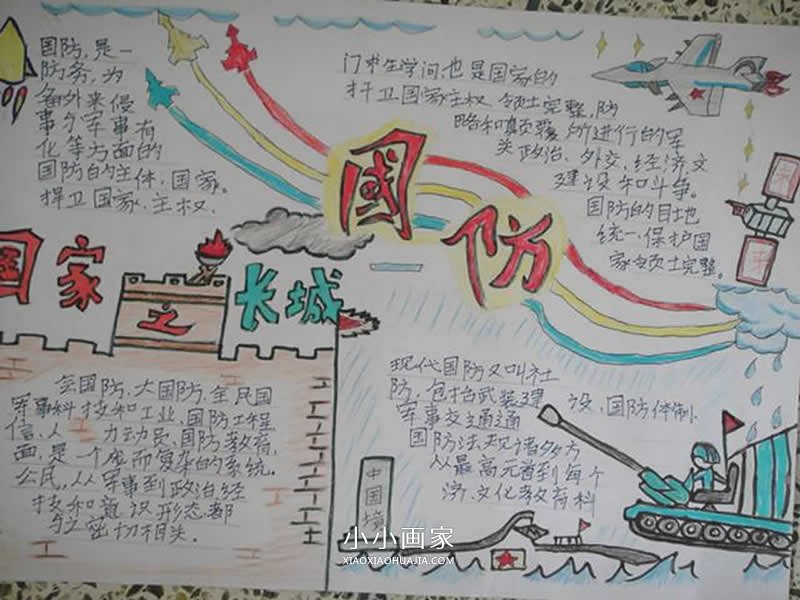 国防,是一
防务,为
备外来侵
事务军事有
化等方面的
国防的主体,国家。
捍卫国家、主权、
门学生学问,也是国家的
捍卫国家主权、领土完整,防
略和颠覆,所进行的军
关政治、外交、经济,文
建设和斗争。
国防的目地
统一,保护国
家领土完整。
國防
国家之长城
全国防,大国防,全民国
军事科技和工业,国防工程
信、人 力动员、国防教育,
面,是一个虚而复杂的系统.
公民,从军事到政治,经
技和意识形态都
与之密切相关.
现代国防又叫社
防,包括武装建 设、国防体制
军事交通通
国防法规诸多方
从最高元首到每个
济、文化教育科
中国境
小小画家
XIAOXIAOHUAJIA.COM